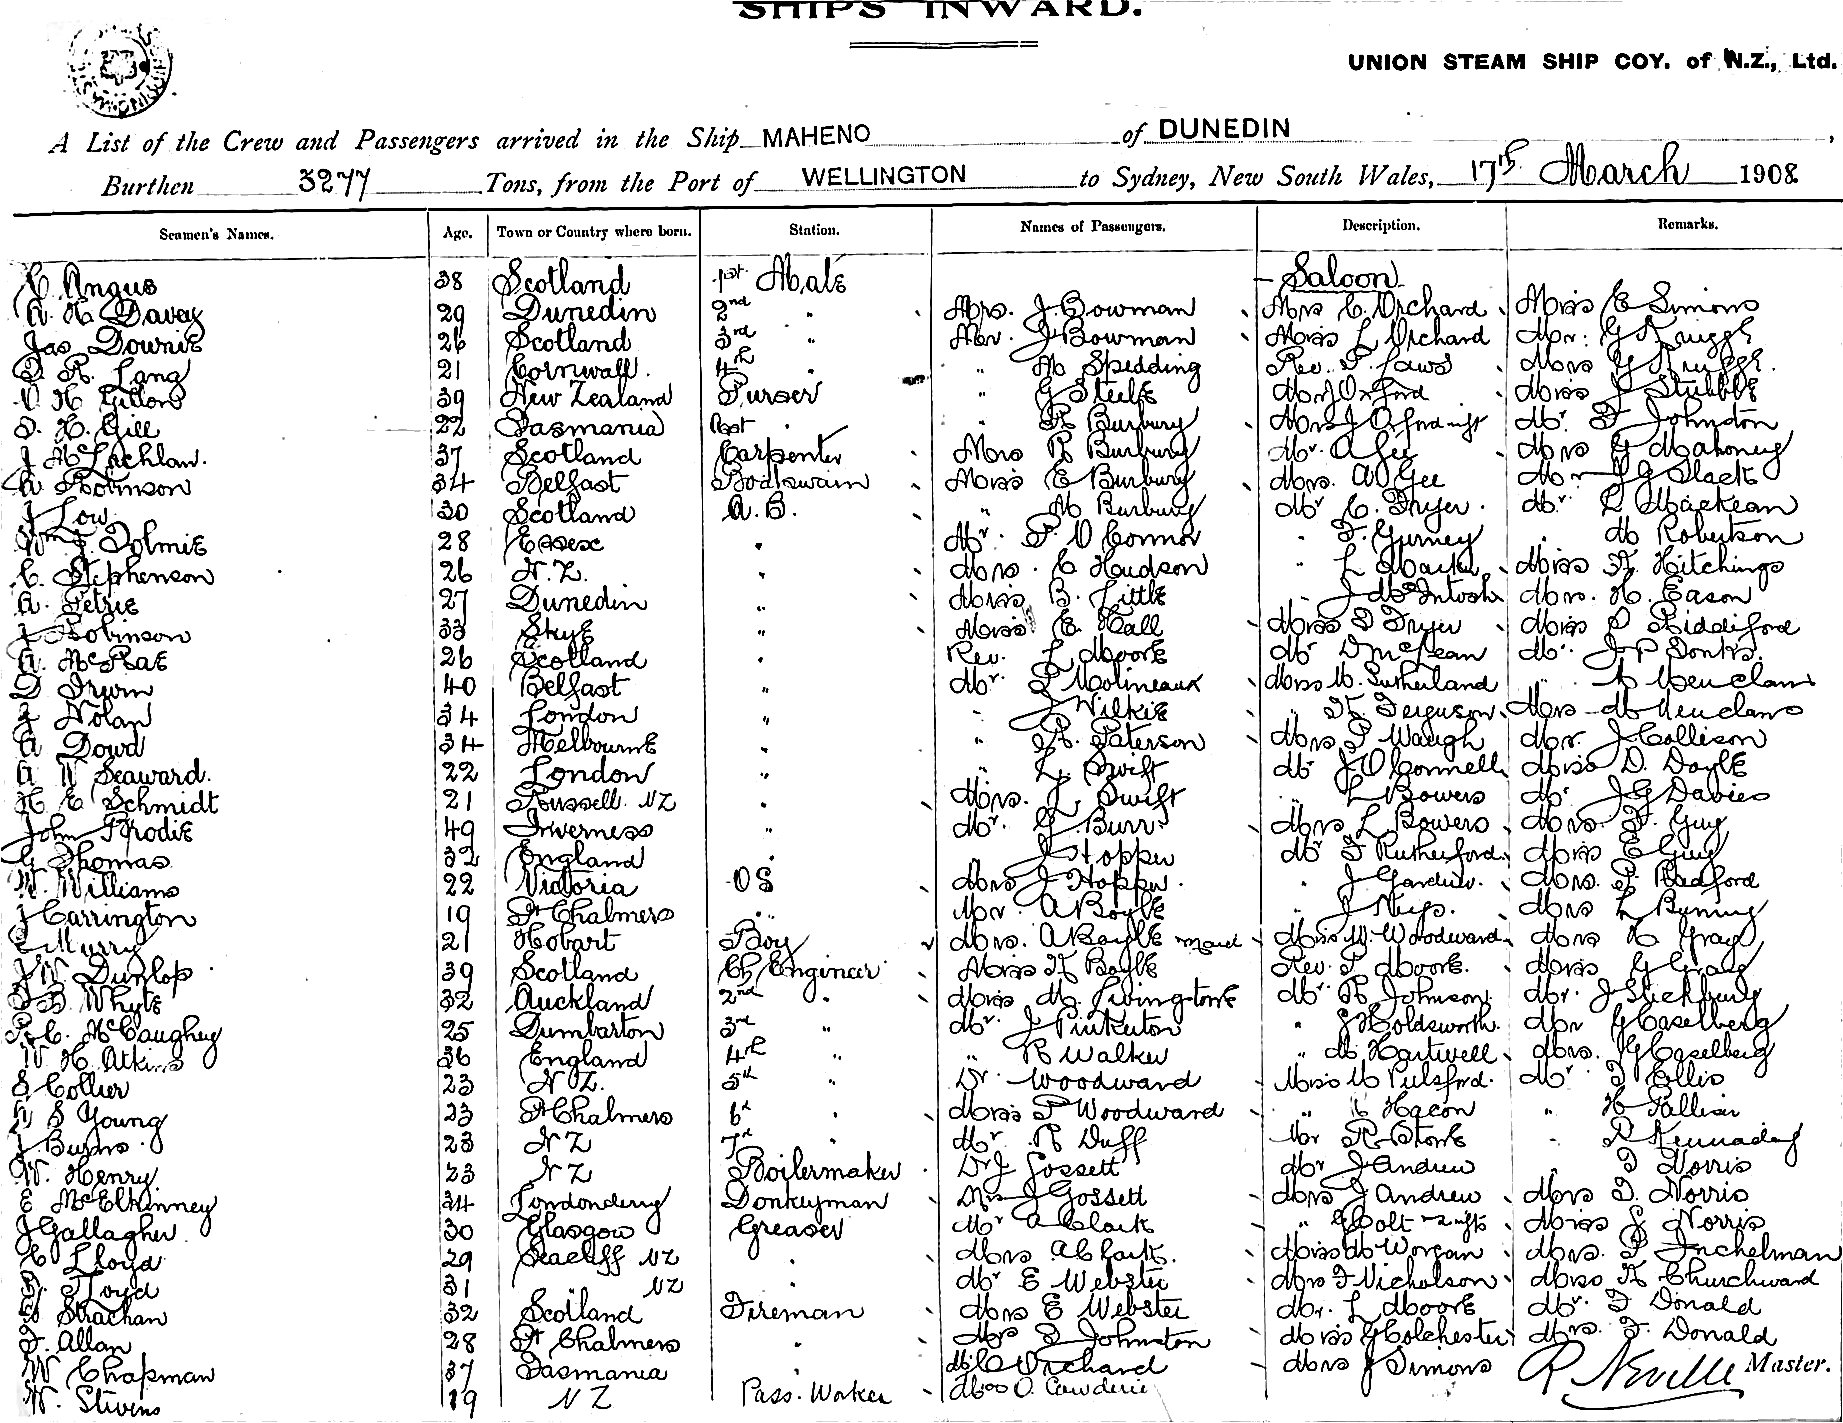 SHIPS INWARD.
UNION STEAM SHIP COY. of N.Z., Ltd.
A List of the Crew and Passengers arrived in the Ship MAHENO of DUNEDIN,
Burthen 3277 Tons, from the Port of WELLINGTON to Sydney, New South Wales, 17th March 1908
Seamen's Names. Age. Town or Country where born. Station. Names of Passengers. Description. Remarks.
C Angus 38 Scotland 1st Mate Saloon
A. H. Davey 29 Dunedin 2nd " Mrs. J. Bowman Mrs C. Orchard Miss E Simons
Jas Downie 26 Scotland 3rd " Mr. J Bowman Miss L Orchard Mr. G Kruggs
D R. Lang 21 Cornwall. 4th " " M Spedding Rev. P. Laws Mrs G Kruggs.
V H Gitton 39 New Zealand Purser " G Steele Mr J Orford Miss J Stubbs
S. H. Gill 22 Tasmania Asst " " R Burbury Mrs J Orford inft Mr. F Johnston
J McLachlan. 37 Scotland Carpenter Mrs R Burbury Mr. A Gee Mrs G Mahoney
A Robinson 34 Belfast Boatswain Miss E Burbury Mrs. A Gee Mr J G Slack
J Low 30 Scotland A.B. " M Burbury Mr C. Fryer Mr L Mackean
Wm J. Tolmie 28 Essex " Mr. P. O Connor " F. Gurney " M Robertson
C. Stephenson 26 N.Z. " Mrs. C Hudson " L Mackie Miss F. Hitchings
A. Petrie 27 Dunedin " Miss B. Little " J McIntosh Mrs. H. Eason
J Robinson 33 Skye " Miss E. Hall Miss D Fryer Miss P Riddiford
A. McRae 26 Scotland " Rev. L Moore Mr D McKean Mr. J P Sonks.
D Irwin 40 Belfast " Mr. P Molineaux Miss M. Sutherland "
J Nolan 34 London " " J Wilkie " H Ferguson Mrs M
A Dowd 34 Melbourne " " J A. Paterson Mrs P Waugh Mr. J Collison
A W Seaward. 22 London " " L. Swift Mr J O Connell Miss D. Doyle
H E Schmidt 21 Russell NZ " Mrs. L Swift " L Bowers Mr J G Davies
John Brodie 49 Inverness " Mr. G Burr Mrs L Bowers Mrs. F. Guy
G Thomas 32 England " J Hopper Mr F Rutherford Miss E Guy
W. Williams 22 Victoria OS Mrs J Hopper. " J Gardiner. Mrs. P. Radford
J Carrington 19 Pt Chalmers " Mr. A Boyle " J Mrs L
C Murry 21 Hobart Boy Mrs. A Boyle maid Miss W. Woodward Mrs H Gray
J W Dunlop 39 Scotland Ch Engineer Miss H Boyle Rev. P Moore. Miss G Gray
D B Whyte 32 Auckland 2nd " Miss M. Livingstone Mr. H Johnson Mr. J Stichbury
R. C. McCaughey 25 Dumbarton 3rd " Mr. J Pinkerton " J Holdsworth. Mr G Caselberg
W. H. Atkins 36 England 4th " " R Walker " M. Hartwell Mrs. G Caselberg
S Collier 23 N Z. 5th " Dr. Woodward Miss M Pulsford. Mr. F Ellis
W S Young 23 Pt Chalmers 6th " Miss P Woodward " C Hacon " H Pallisr
J Burns 23 N Z 7th " Mr. R Duff Mr R Stone " P Kennaday
W. Henry. 23 N Z Boilermaker Dr J Gossett Mr J Andrew " F Norris
E McElhinney 24 Londonderry Donkeyman Mrs J Gossett Mrs J Andrew Mrs F. Norris
J Gallagher 30 Glasgow Greaser Mr A Clark " G Colt 2 infts Miss J Norris
C Lloyd 29 Seacliff NZ " Mrs A Clark. Miss M Worgan Mrs. P Inchelman
31 NZ " Mr E Webster Mrs F Nicholson Miss H Churchward
Strachan 32 Scotland Fireman Mrs E Webster Mr. L Moore Mr. F Donald
J. Allan 28 Pt Chalmers " Mr S Johnston Miss G Colchester Mrs. F. Donald
W Chapman 37 Tasmania " Mr C Orchard Mrs J Simons R Neville Master.
W. Stevens 19 N Z Pass. Worker Miss O. Cowderie